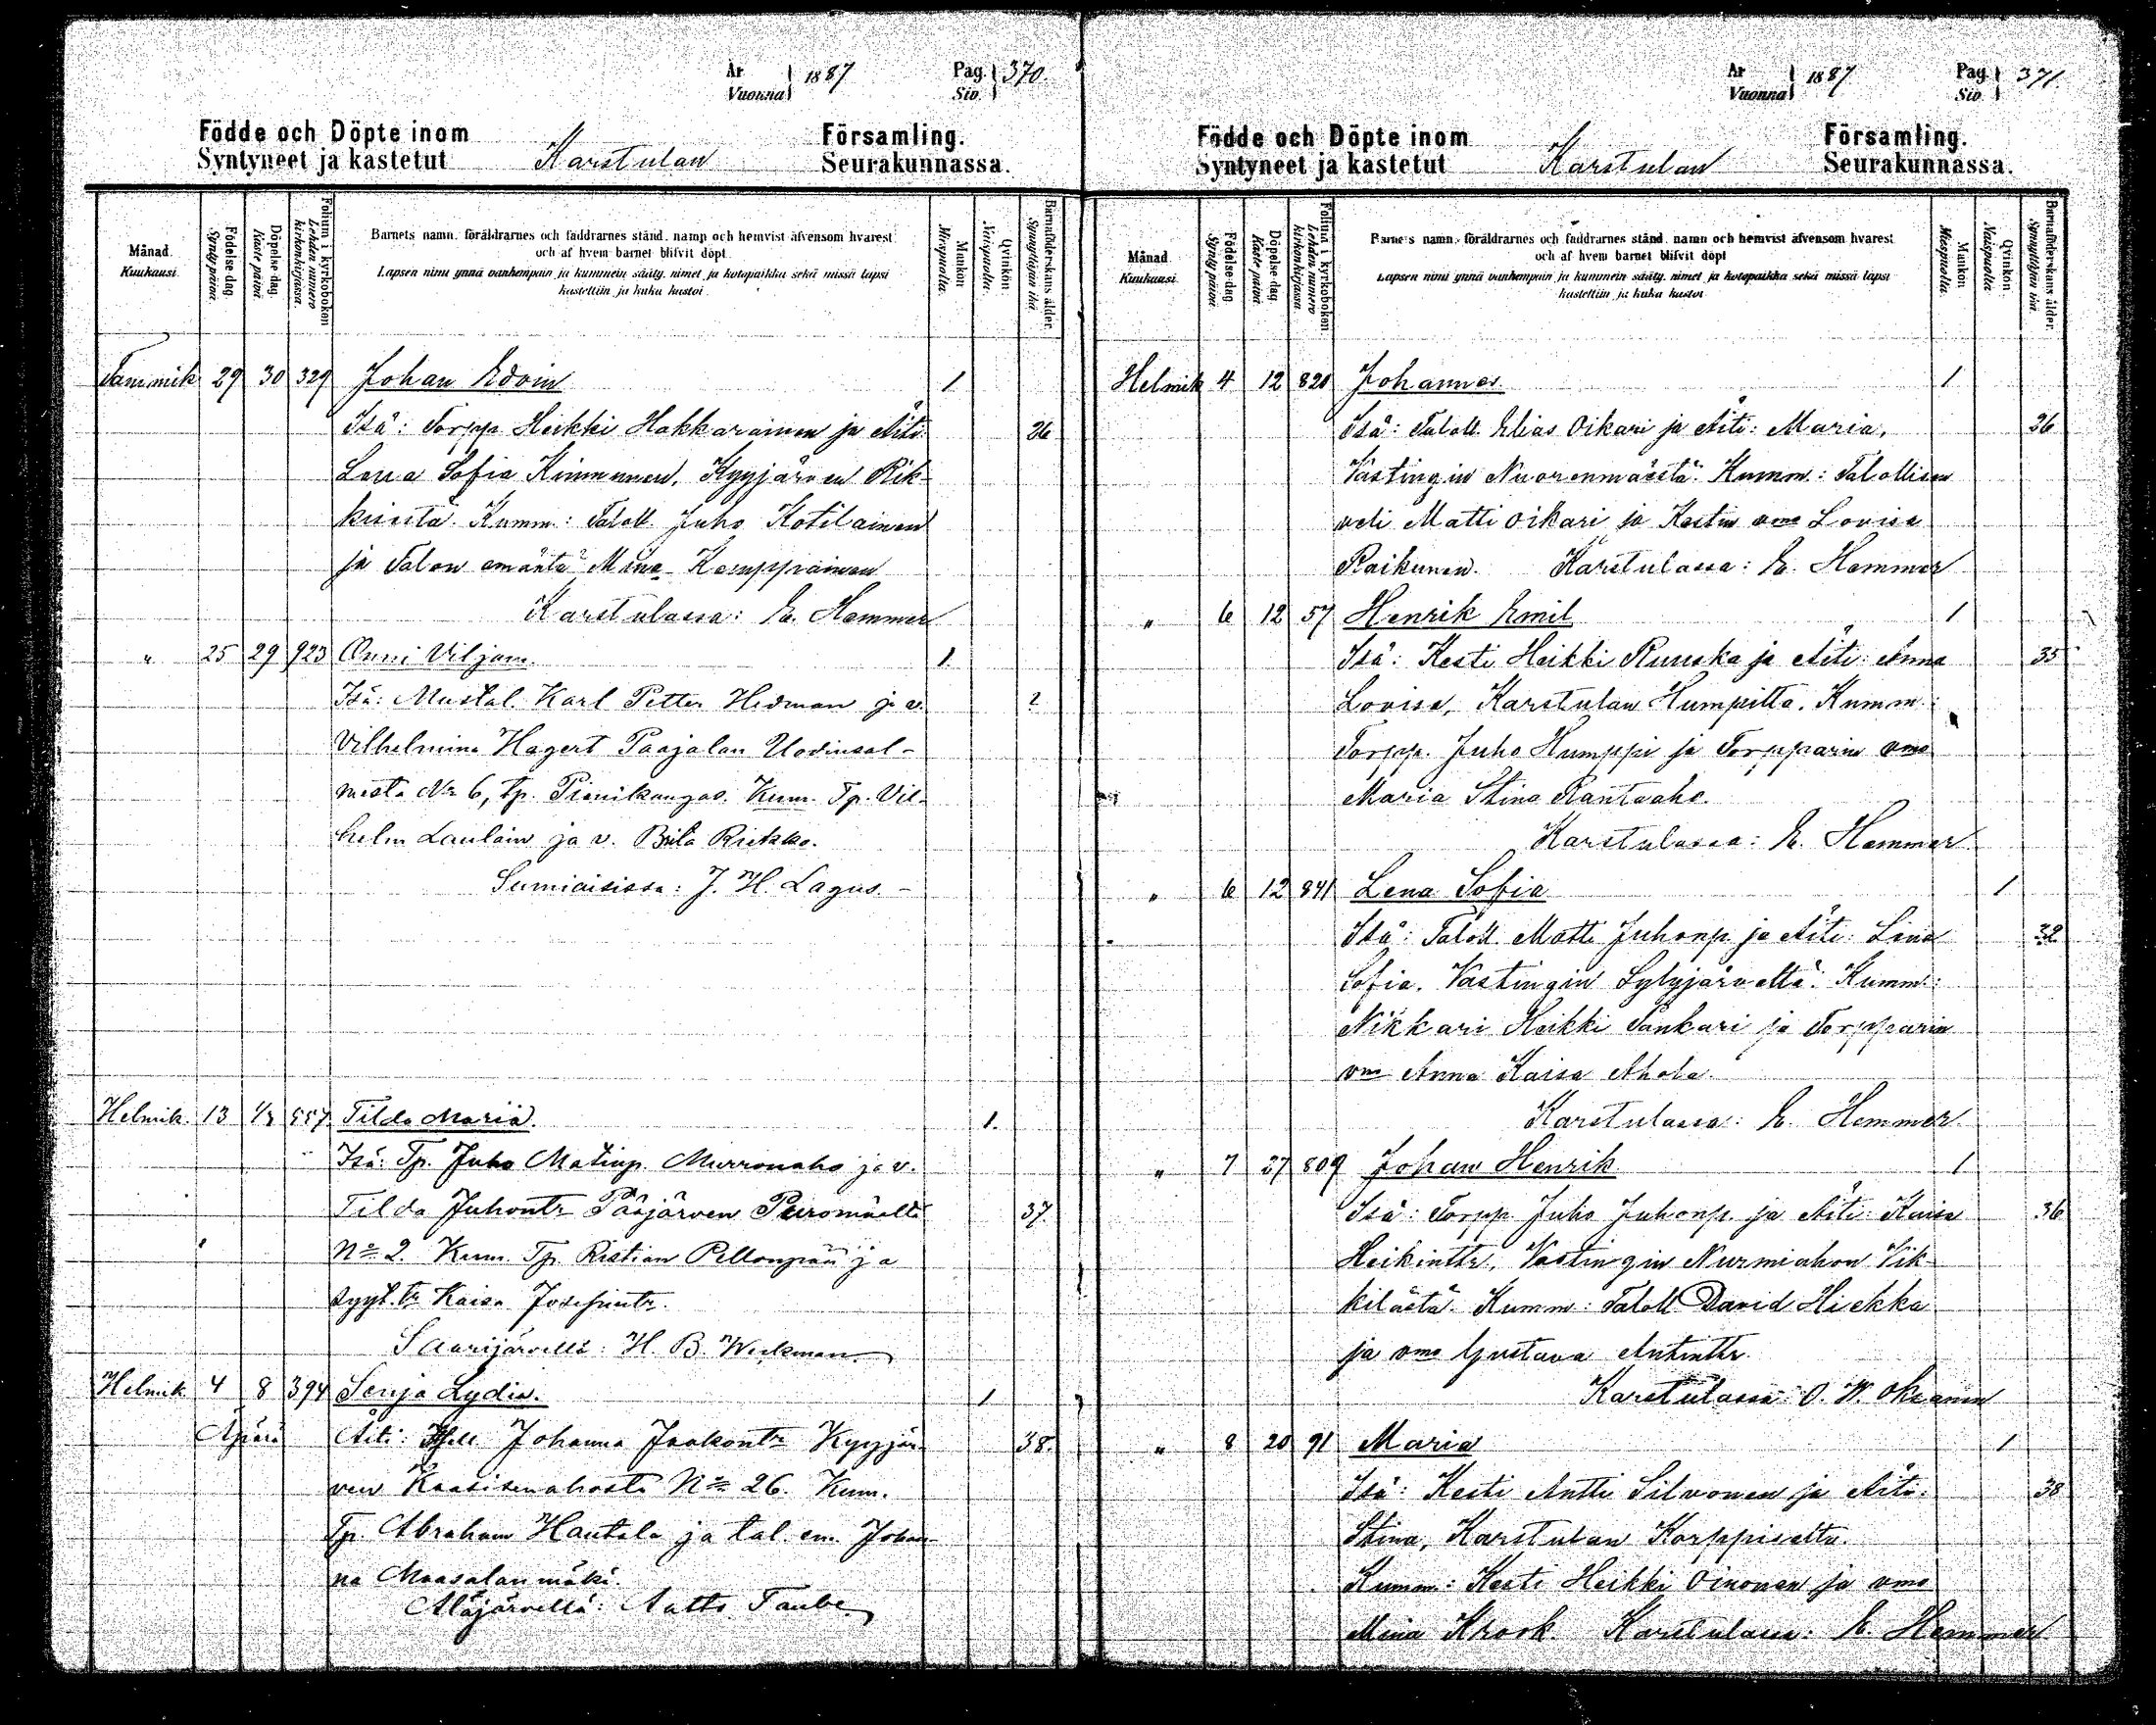 År 1887 Pag. 370.
Vuonna Siv.
Födde och Döpte inom Församling.
Syntyneet ja kastetut Karstulan Seurakunnassa.
Månad. Kuukausi.
Födelse dag. Synty päivä.
Döpelse dag. Kaste päivä.
Folium i kyrkoboken Lehden numero kirkonkirjassa.
Barnets namn, föräldrarnes och faddrarnes stånd, namn och hemvist äfvensom hvarest
och af hvem barnet blifvit döpt.
Lapsen nimi ynnä vanhempain ja kummein sääty, nimet ja kotopaikka sekä missä lapsi
kastettiin ja kuka kastoi.
Mankön Miespuolia.
Qvinkön Naispuolia.
Barnaföderskans ålder. Synnyttäjän ikä.
Tammik 29 30 329 Johan Edvin 1
Isä: Torpp Heikki Hakkarainen ja Äiti: 26
Lena Sofia Kinnunen, Kyyjärven Rik-
Kumm: Taloll. Juho Kotilainen
ja Talon emäntä Mina Kemppainen
Karstulassa: E. Hammer
" 25 29 923 Onni Viljam. 1
Isä: Mustal. Karl Petter Hedman ja v. 2
Vilhelmina Hagert Paajalan Uodinsal-
mesta No 6, tp. Pienikangas. Kum. Tp. Vil-
helm Laulain ja v. Brita Riekko.
Sumiaisissa: J. H. Lagus. -
Helmik. 13 1/3 557 Tilda Maria. 1.
Isä: Tp. Juho Matinp. Murronaho ja v.
Tilda Juhontr Pääjärven Puromäeltä 37.
No 2. Kum. Tp. Ristian Pellonpää ja
sgyt. tr Kaisa Josefintr.
Saarijärvellä: H. B. Weckman.
Helmik 4 8 394 Senja Lydia. 1
Äpärä Äiti: Johanna Jaakontr Kyyjär- 38.
ven Kaasisenahosta No 26. Kum.
Tp. Abraham Hautala ja tal. em. Johan-
na Maasalanmäki.
Alajärvellä: Aatto Taube.
År 1887 Pag. 371.
Vuonna Siv.
Födde och Döpte inom Församling.
Syntyneet ja kastetut Karstulan Seurakunnassa.
Månad Kuukausi.
Födelse dag Synty päivä.
Döpelse dag Kaste päivä.
Folium i kyrkoboken Lehden numero kirkonkirjassa.
Barnets namn, föräldrarnes och faddrarnes stånd, namn och hemvist äfvensom hvarest
och af hvem barnet blifvit döpt
Lapsen nimi ynnä vanhempain ja kummein sääty, nimet ja kotopaikka sekä missä lapsi
kastettiin ja kuka kastoi
Mankön Miespuolia.
Qvinkön Naispuolia
Barnaföderskans ålder. Synnyttäjän ikä.
Helmik 4 12 820 Johannes. 1
Isä: Taloll. Elias Oikari ja Äiti: Maria, 26
Vastingin Nuorenmäestä. Kumm: Talollisen
veli Matti Oikari ja Kestin vmo Lovisa
Raikunen. Karstulassa: E. Hammer
" 6 12 57 Henrik Emil 1
Isä: Kesti Heikki Ruuska ja Äiti: Anna 35
Lovisa, Karstulan Humpilta. Kumm:
Torpp. Juho Humppi ja Torpparin vmo
Maria Stina Rantaaho.
Karstulassa: E. Hammer
" 6 12 841 Lena Sofia 1
Isä: Taloll. Matti Juhonp. ja Äiti: Lina 32
Sofia. Vastingin Sylyjärveltä. Kumm:
Nikkari Heikki Sankari ja Torpparin
vmo Anna Kaisa Ahola.
Karstulassa: E. Hammer.
" 7 27 809 Johan Henrik 1
Isä: Torpp. Juho Juhonp. ja Äiti: Kaisa 36
Heikintr, Vastingin Nurmiahon Vik-
kilästä. Kumm: Taloll. David Hiekka
ja vmo Gustava Antintr.
Karstulassa: O. W. Oksanen
" 8 20 91 Maria 1
Isä: Kesti Antti Silvonen ja Äiti: 38
Stina, Karstulan Korppiselta.
Kumm: Kesti Heikki Oinonen ja vmo
Mina Krook. Karstulassa: E. Hammer